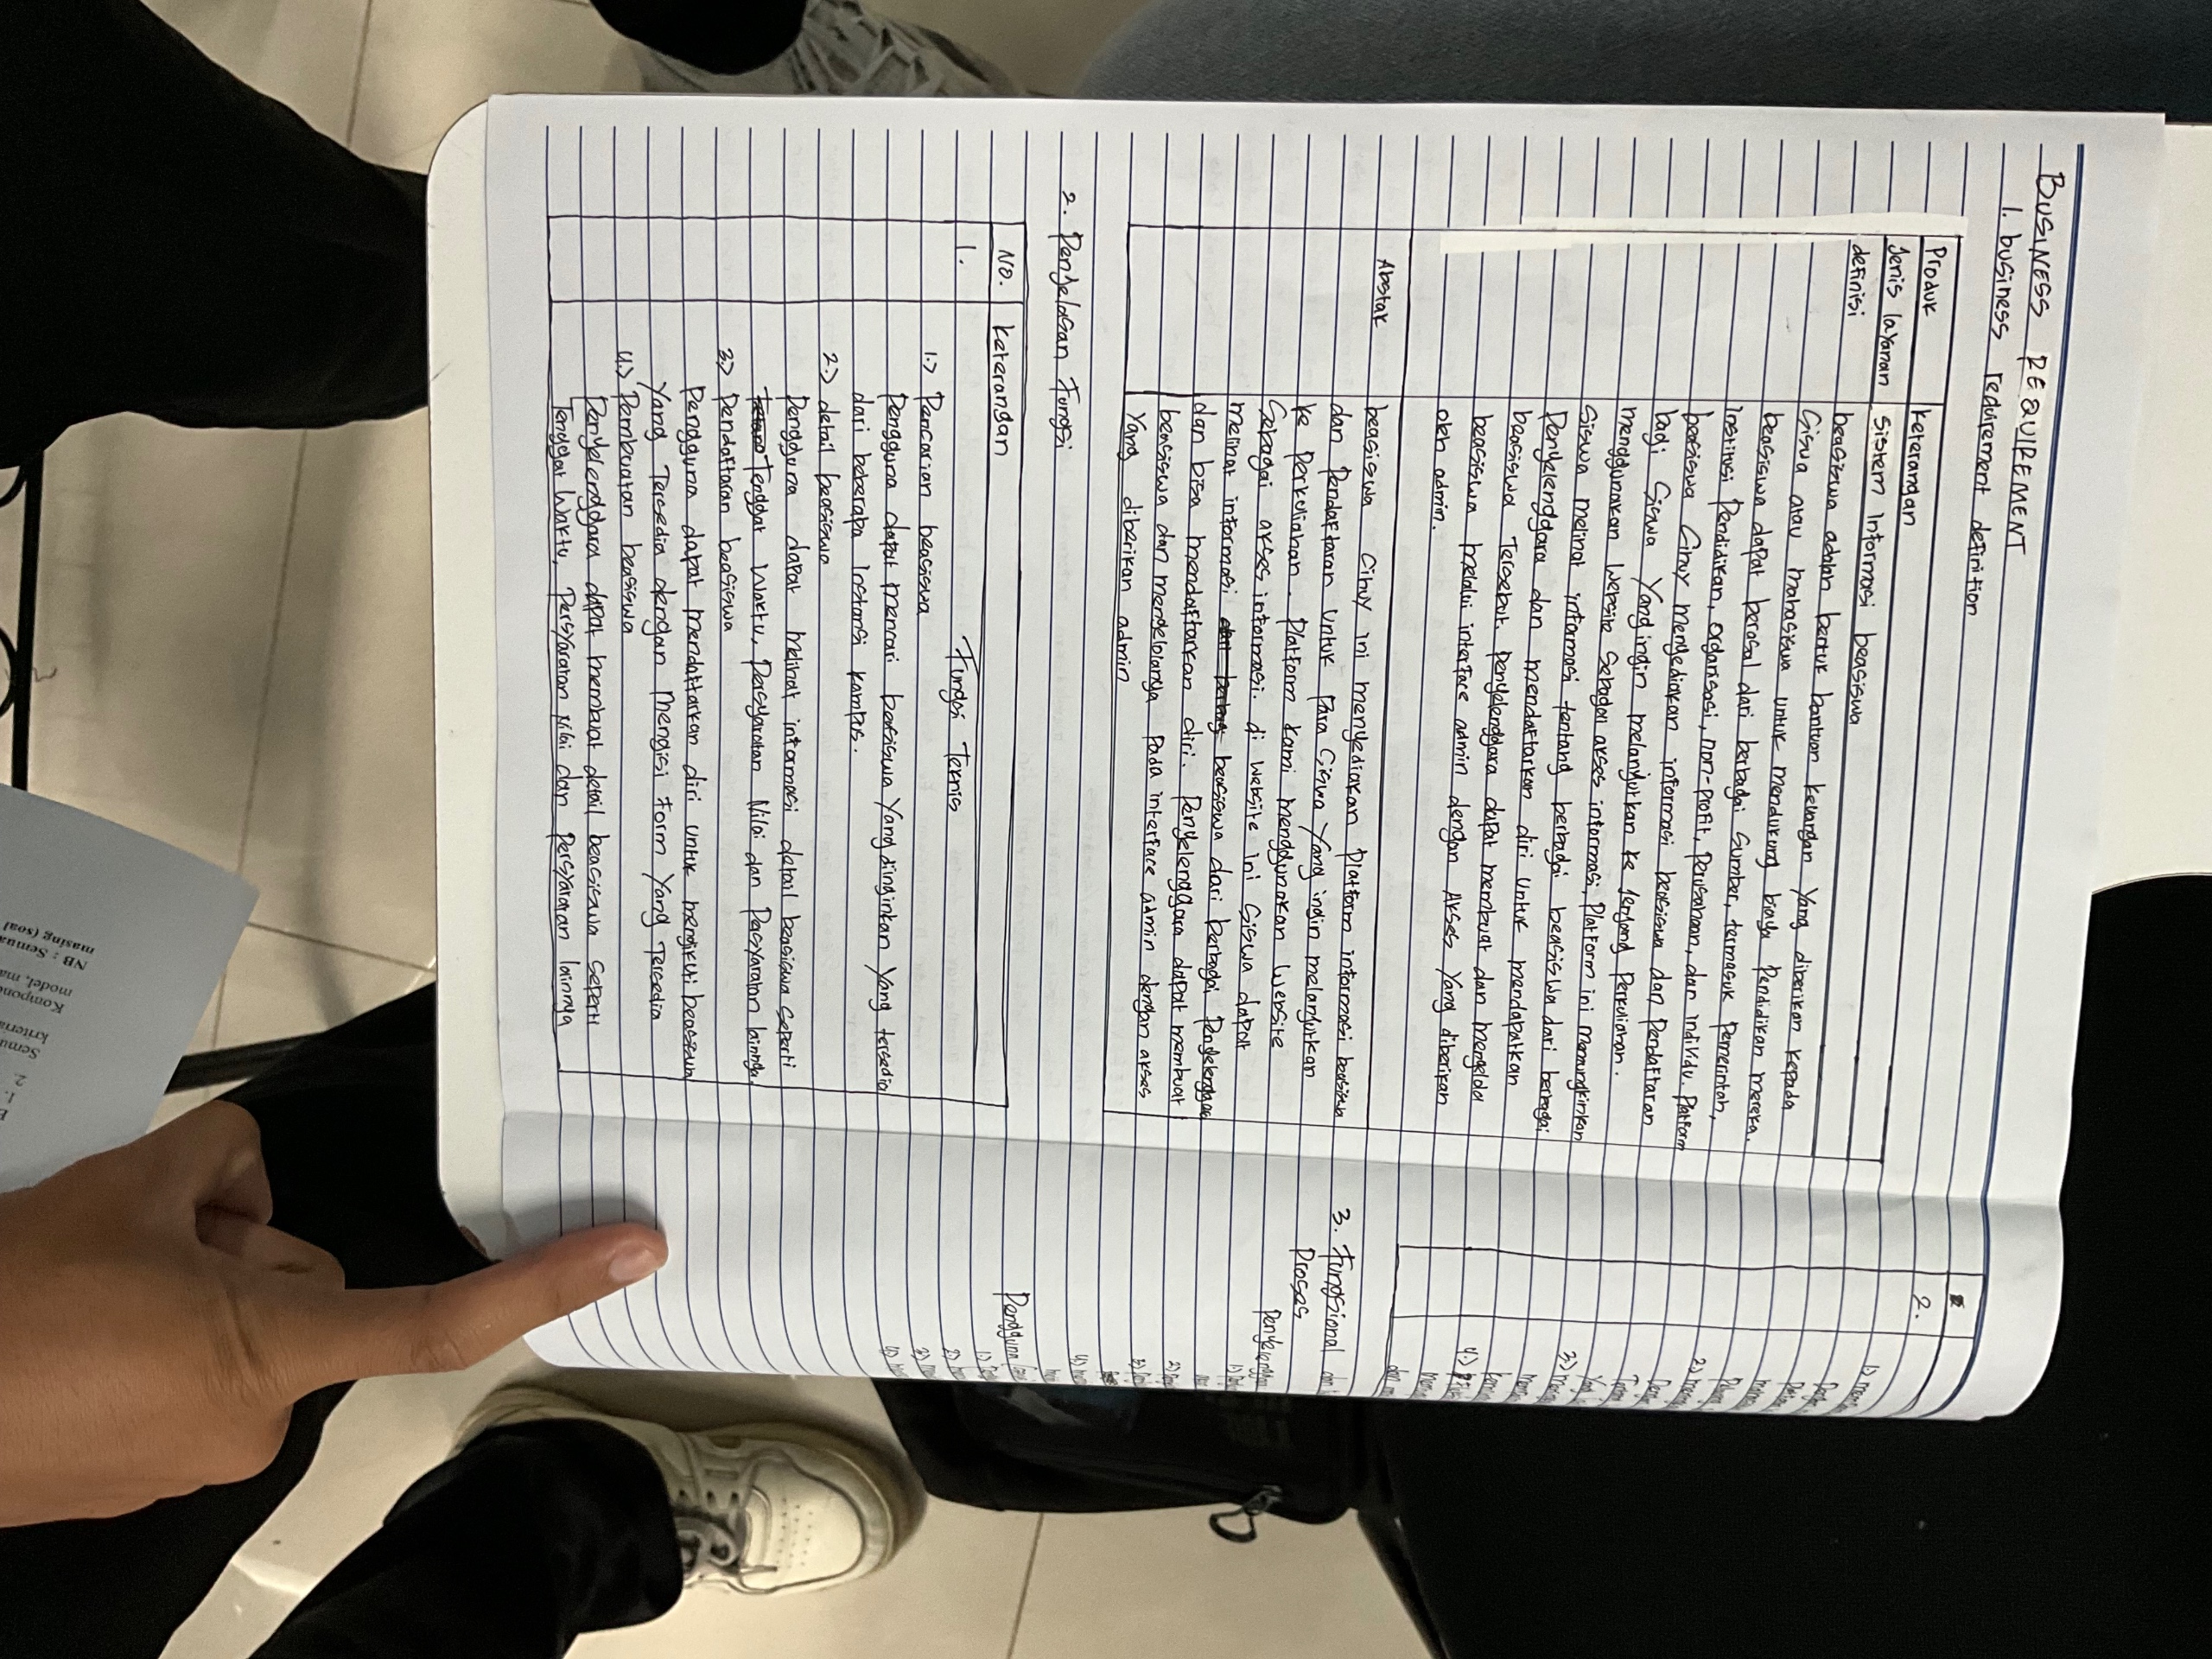 BUSINESS REQUIREMENT
1. business requirement definition
Produk Keterangan
Jenis layanan Sistem Informasi beasiswa
definisi beasiswa adalah bentuk bantuan keuangan Yang diberikan kepada
Siswa atau mahasiswa untuk mendukung biaya Pendidikan mereka.
beasiswa dapat berasal dari berbagai Sumber, termasuk Pemerintah,
institusi Pendidikan, organisasi, non-profit, Perusahaan, dan individu. Platform
beasiswa Cihuy menyediakan informasi beasiswa dan Pendaftaran
bagi Siswa Yang ingin melanjutkan ke Jenjang Perkuliahan.
menggunakan Website Sebagai akses informasi, Platform ini memungkinkan
Siswa melihat informasi tentang berbagai beasiswa dari berbagai
Penyelenggara dan mendaftarkan diri untuk mendapatkan
beasiswa Tersebut. Penyelenggara dapat membuat dan mengelola
beasiswa melalui interface admin dengan Akses Yang diberikan
oleh admin.
Abstak beasiswa Cihuy ini menyediakan Platform informasi beasiswa
dan Pendaftaran untuk Para Siswa Yang ingin melanjutkan
ke Perkuliahan. Platform kami menggunakan Website
Sebagai akses informasi. di Website ini Siswa dapat
melihat informasi beasiswa dari berbagai Penyelenggara
dan bisa mendaftarkan diri. Penyelenggara dapat membuat
beasiswa dan mengelolanya Pada interface admin dengan akses
Yang diberikan admin
2. Penjelasan Fungsi
NO. Keterangan
1. Fungsi Teknis
1.) Pencarian beasiswa
Pengguna dapat mencari beasiswa Yang diinginkan Yang tersedia
dari beberapa Instansi kampus.
2.) detail beasiswa
Pengguna dapat melihat informasi detail beasiswa seperti
Tenggat Waktu, Persyaratan Nilai dan Persyaratan lainnya.
3.) Pendaftaran beasiswa
Pengguna dapat mendaftarkan diri untuk mengikuti beasiswa
Yang Tersedia dengan Mengisi Form Yang Tersedia
4.) Pembuatan beasiswa
Penyelenggara dapat membuat detail beasiswa seperti
Tenggat Waktu, Persyaratan nilai dan Persyaratan lainnya
2.
1)
2)
3)
4.)
3. Fungsional
Proses
Penyelenggara
1)
2)
3)
4)
Pengguna
1)
2)
3)
4)
NB : Semua
masing (soal